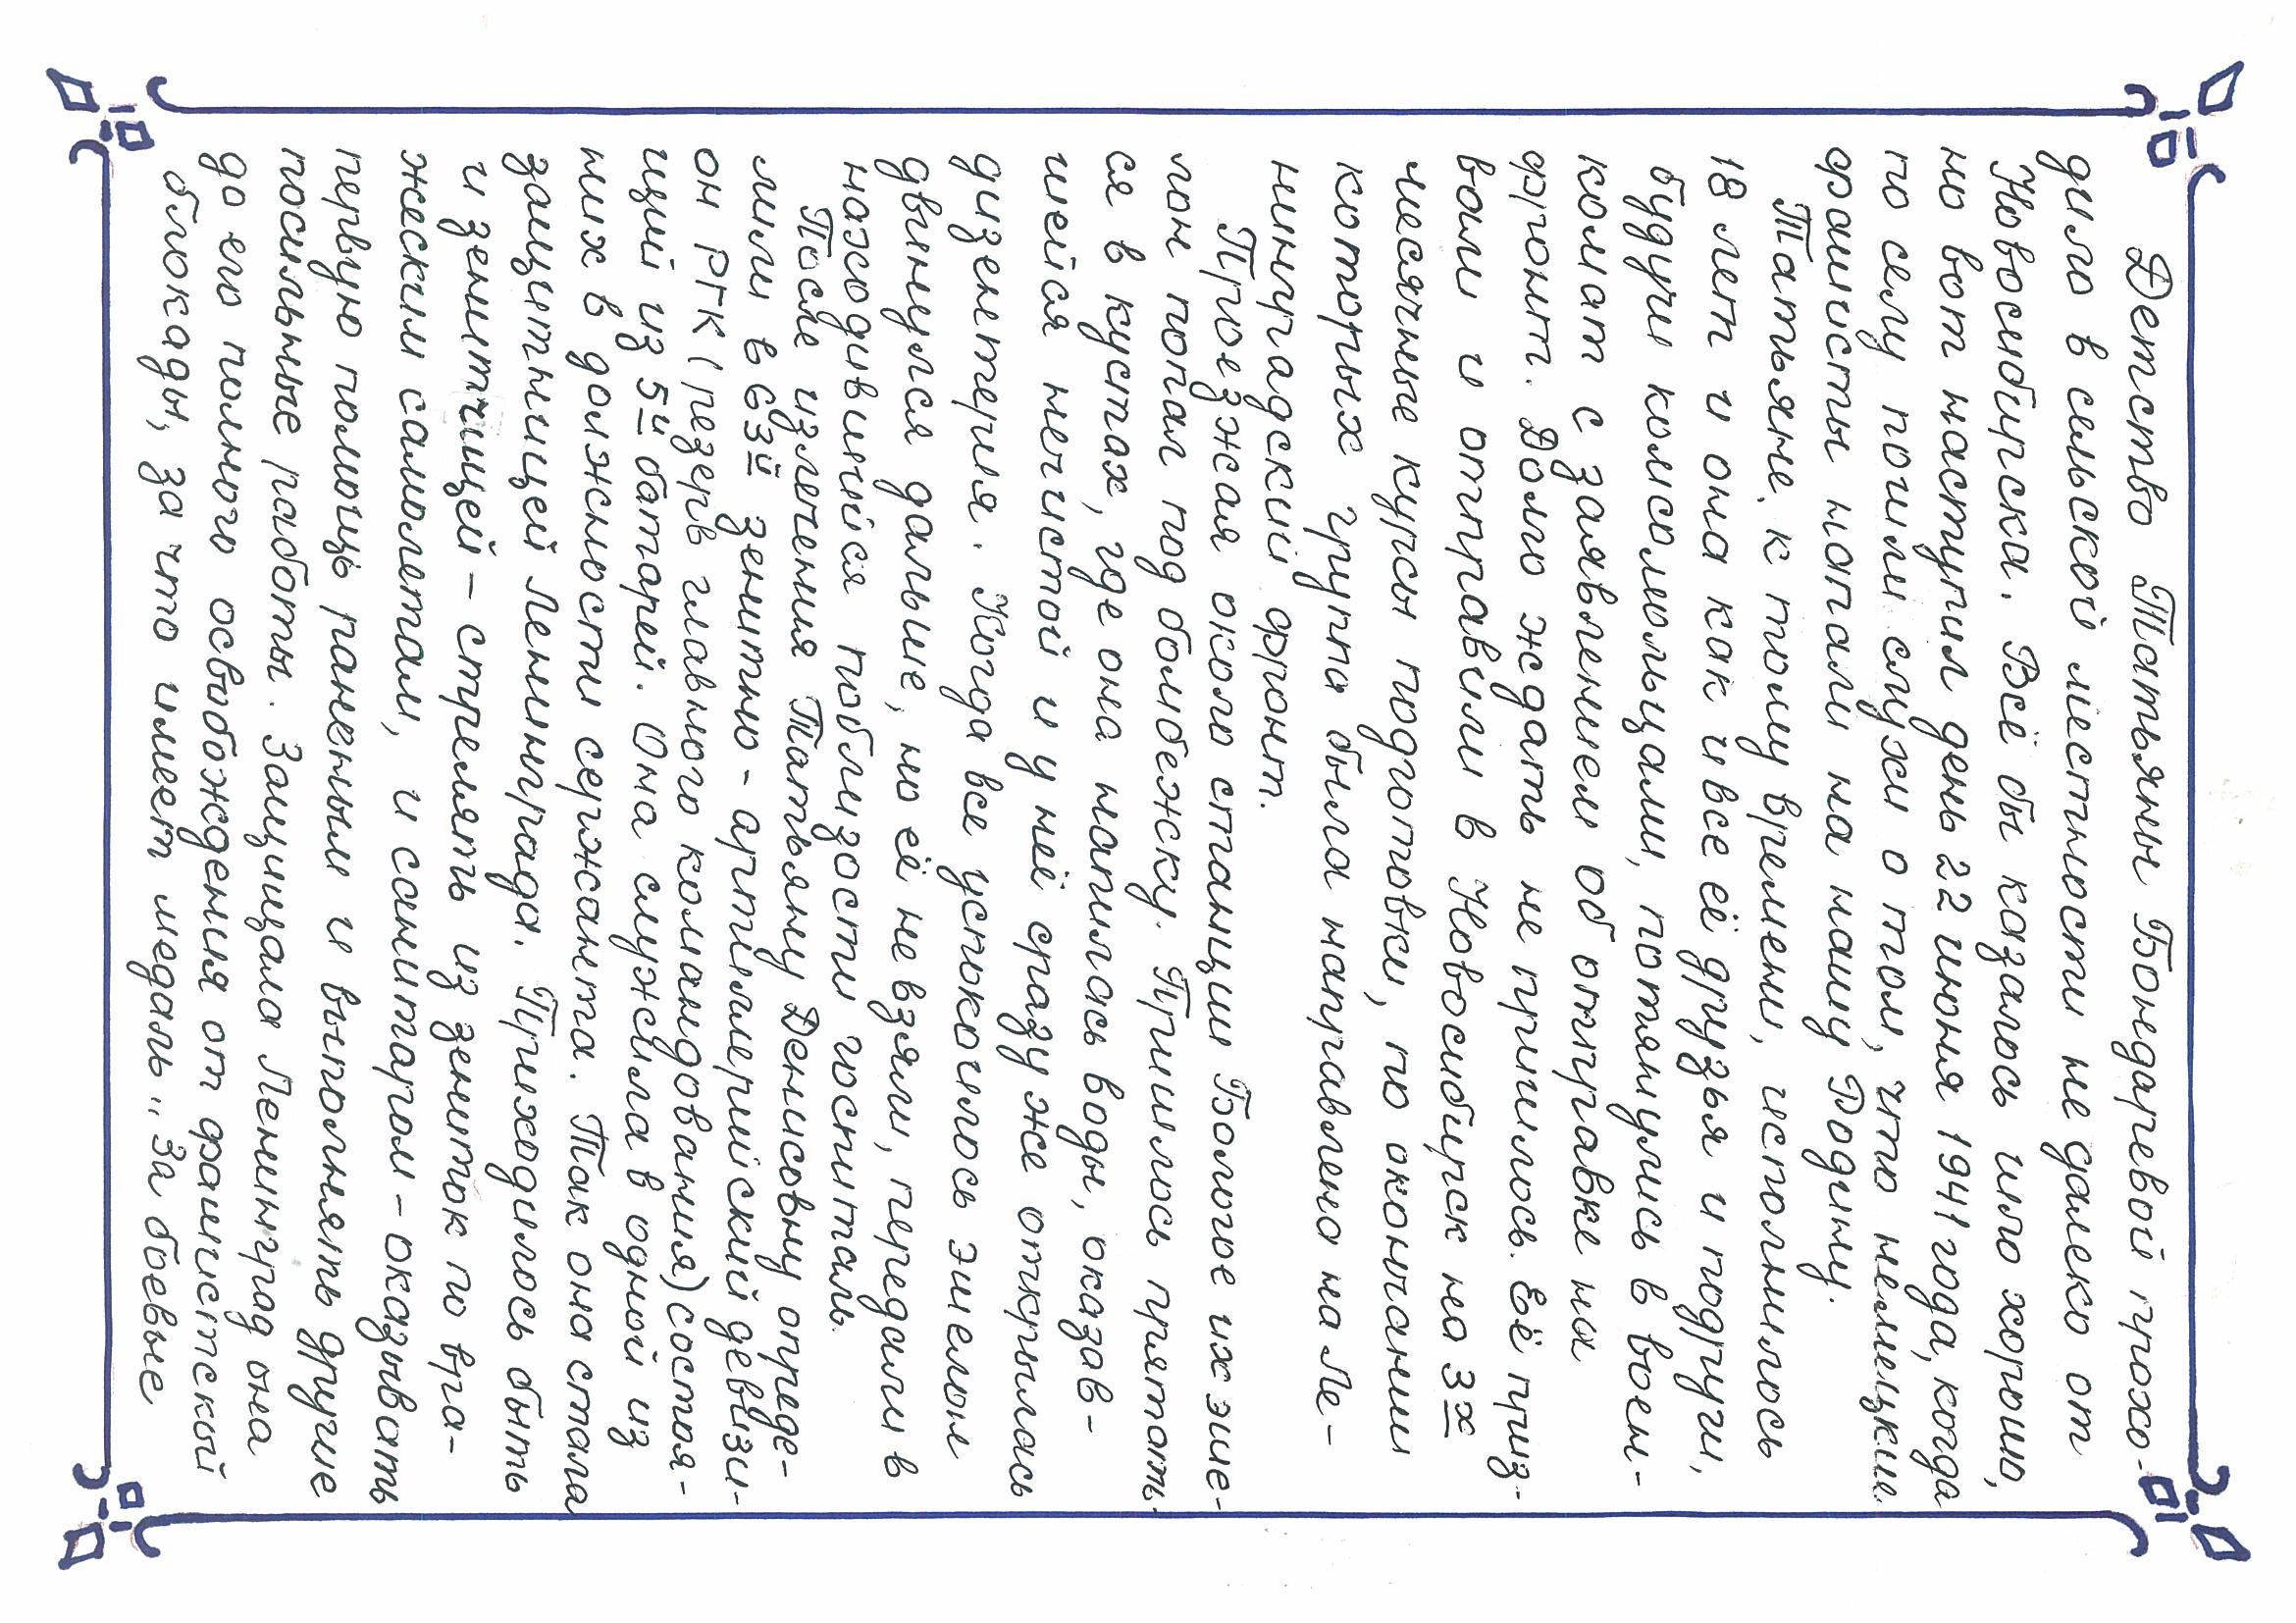 Детство Татьяны Бондаревой прохо-
дило в сельской местности не далеко от
Новосибирска. Всё бы казалось шло хорошо,
но вот наступил день 22 июня 1941 года, когда
по селу пошли слухи о том, что немецкие
фашисты напали на нашу Родину.
Татьяне, к тому времени, исполнилось
18 лет и она как и все её друзья и подруги,
будучи комсомольцами, потянулись в воен-
комат с заявлением об отправке на
фронт. Долго ждать не пришлось. Её приз-
вали и отправили в Новосибирск на 3х
месячные курсы подготовки, по окончании
которых группа была направлена на Ле-
нинградский фронт.
Проезжая около станции Бологое их эше-
лон попал под бомбежку. Пришлось прятать-
ся в кустах, где она напилась воды, оказав-
шейся нечистой и у неё сразу же открылась
дизентерия. Когда все успокоилось эшелон
двинулся дальше, но её не взяли, передали в
находившийся поблизости госпиталь.
После излечения Татьяну Денисовну опреде-
лили в 63й зенитно-артиллерийский девизи-
он РГК (резерв главного командования) состоя-
щий из 5и батарей. Она служила в одной из
них в должности сержанта. Так она стала
защитницей Ленинграда. Приходилось быть
и зенитчицей - стрелять из зениток по вра-
жеским самолетам, и санитаром - оказывать
первую помощь раненым и выполнять другие
посильные работы. Защищала Ленинград она
до его полного освобождения от фашистской
блокады, за что имеет медаль „За боевые